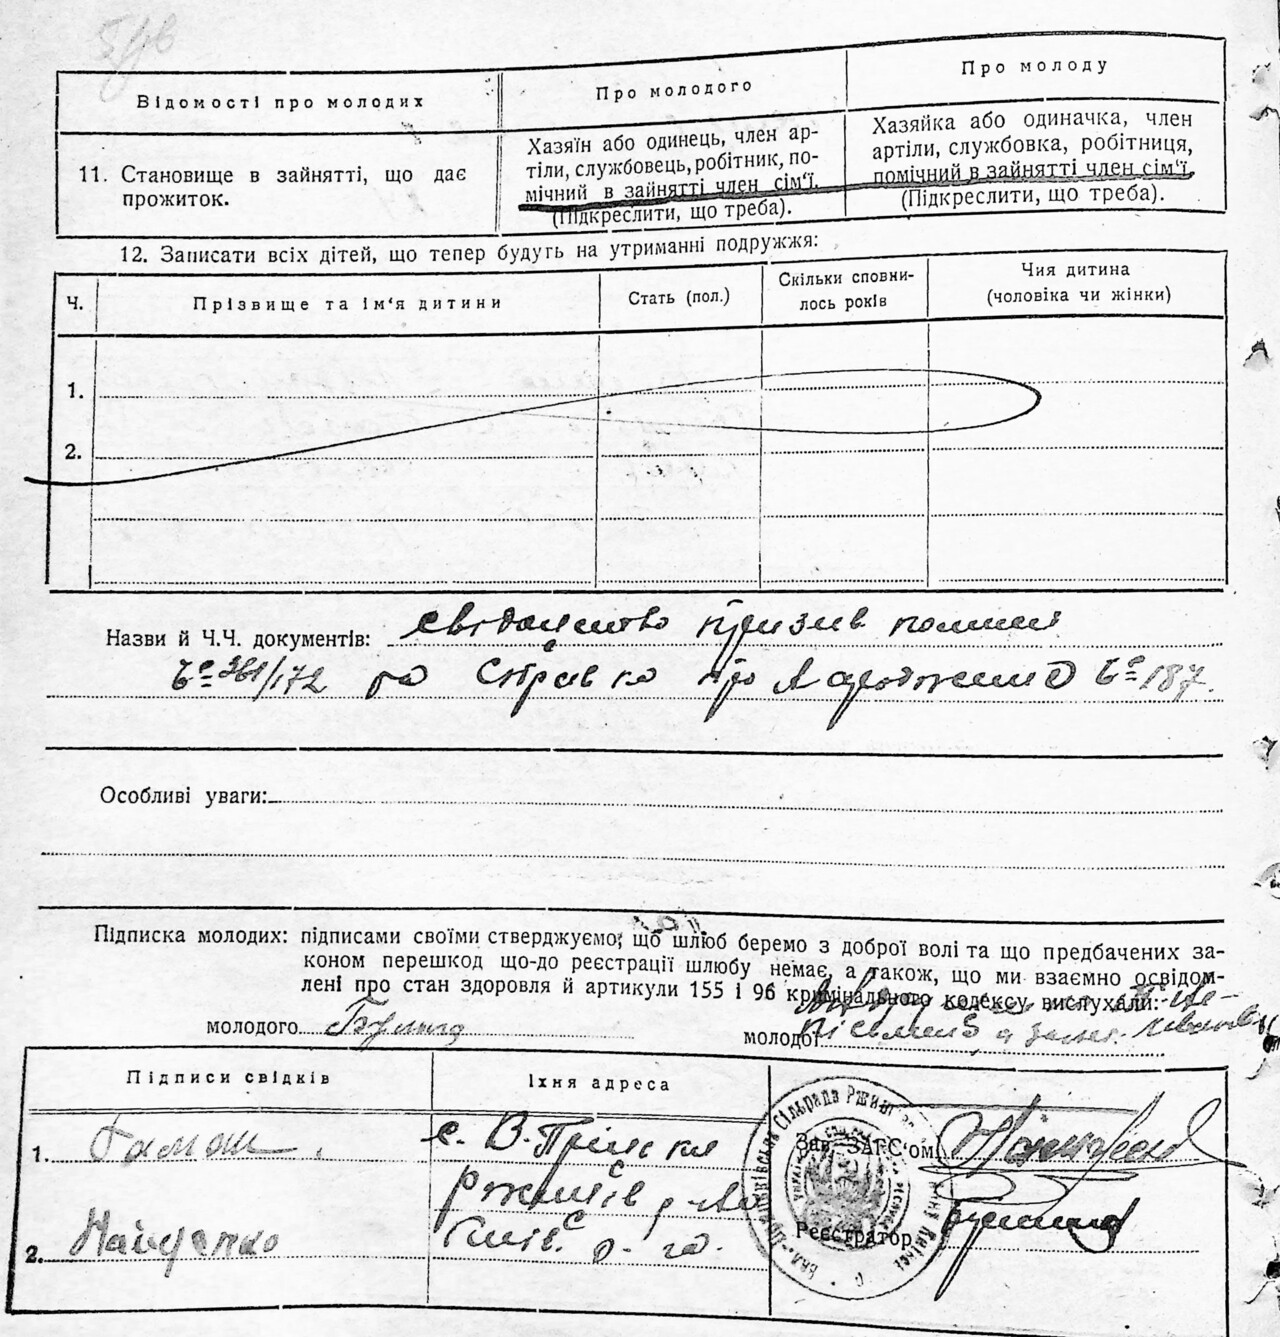 Відомості про молодих
Про молодого
Про молоду
11. Становище в зайнятті, що дає
прожиток.
Хазяїн або одинець, член ар-
тіли, службовець, робітник, по-
мічний в зайнятті член сім'ї.
(Підкреслити, що треба).
Хазяйка або одиначка, член
артіли, службовка, робітниця,
помічний в зайнятті член сім'ї.
(Підкреслити, що треба).
12. Записати всіх дітей, що тепер будуть на утриманні подружжя:
Ч.
Прізвище та ім'я дитини
Стать (пол.)
Скільки сповни-
лось років
Чия дитина
(чоловіка чи жінки)
1.
2.
Назви й Ч.Ч. документів: свідоцтво призив
361/172 та Справка про народження 187.
Особливі уваги:
Підписка молодих: підписами своїми стверджуємо, що шлюб беремо з доброї волі та що предбачених за-
коном перешкод що-до реєстрації шлюбу немає, а також, що ми взаємно освідом-
лені про стан здоровля й артикули 155 і 96 кримінального кодексу вислухали:
молодого
молодої
Підписи свідків
Їхня адреса
1. Гамаш
с. В.-Пріцки
Ржищів р-ну
Київ. о-ги.
2. Найденко
Зав. ЗАГС'ом
Реєстратор